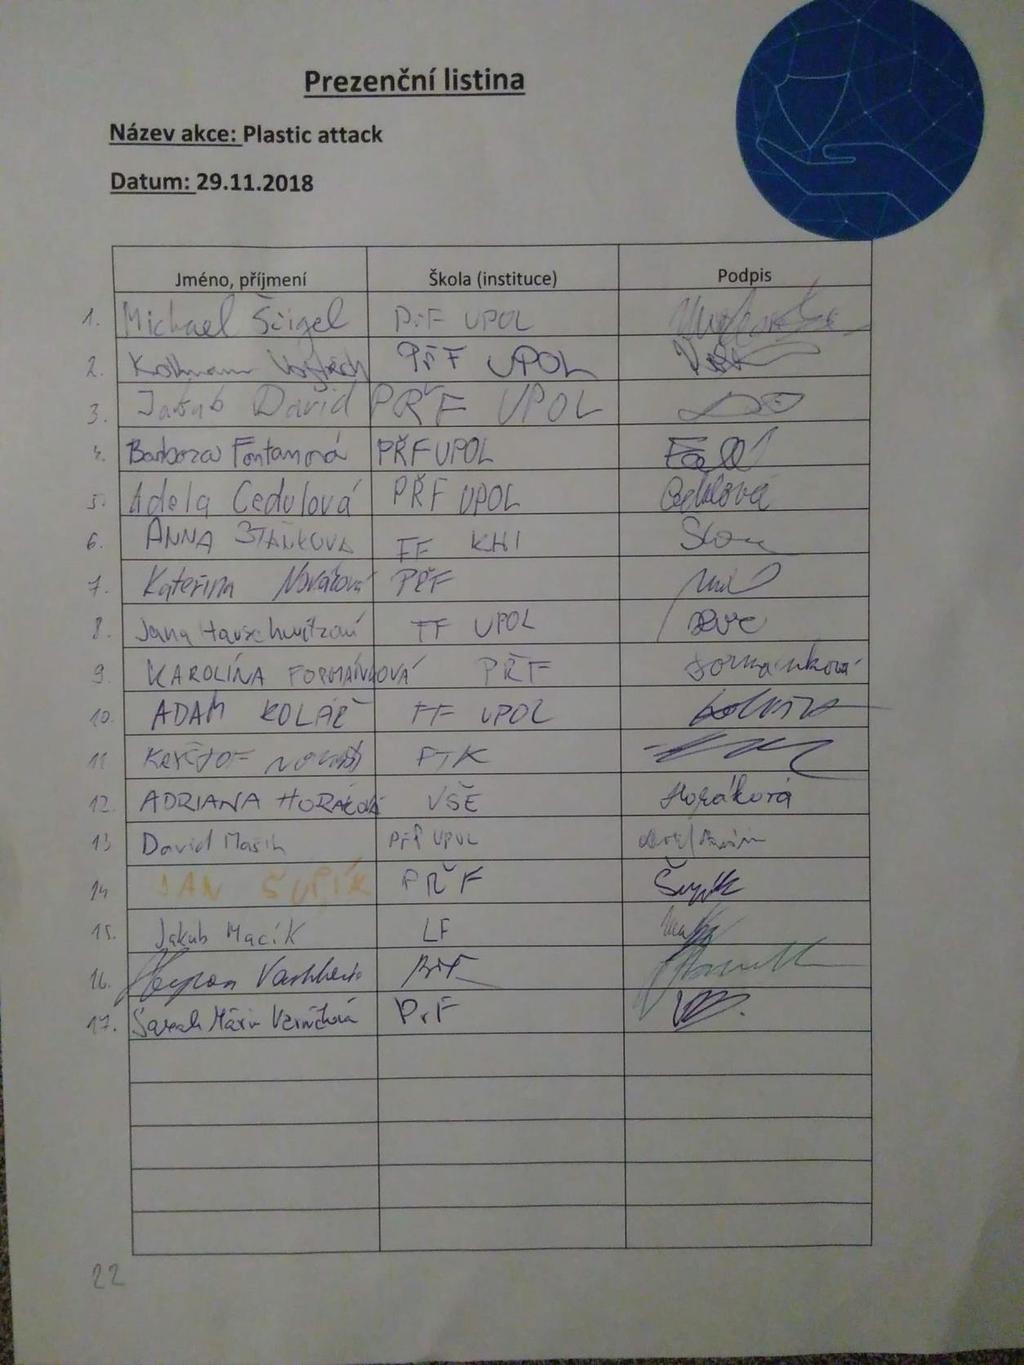 Prezenční listina
Název akce: Plastic attack
Datum: 29.11.2018
Jméno, příjmení Škola (instituce) Podpis
1. Michael Šigel PřF UPOL
2. Vojtěch PŘF UPOL
3. Jakub David PŘF UPOL
4. Barbora Fontanová PŘF UPOL
5. Adéla Cedulová PŘF UPOL Cedulová
6. ANNA STAŇKOVÁ FF KHI
7. Kateřina Nováková PŘF
8. Jana UPOL
9. KAROLÍNA FORMÁNKOVÁ PŘF Formánková
10. ADAM KOLÁŘ FF UPOL
11
12. ADRIANA HORÁKOVÁ VŠE Horáková
13 David Mašik PřF UPOL
14 JAN ŠUPÍK PŘF
15. Jakub Macík LF
16.
17. Sarah PřF
22